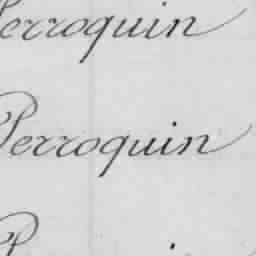 Perroquin
Perroquin